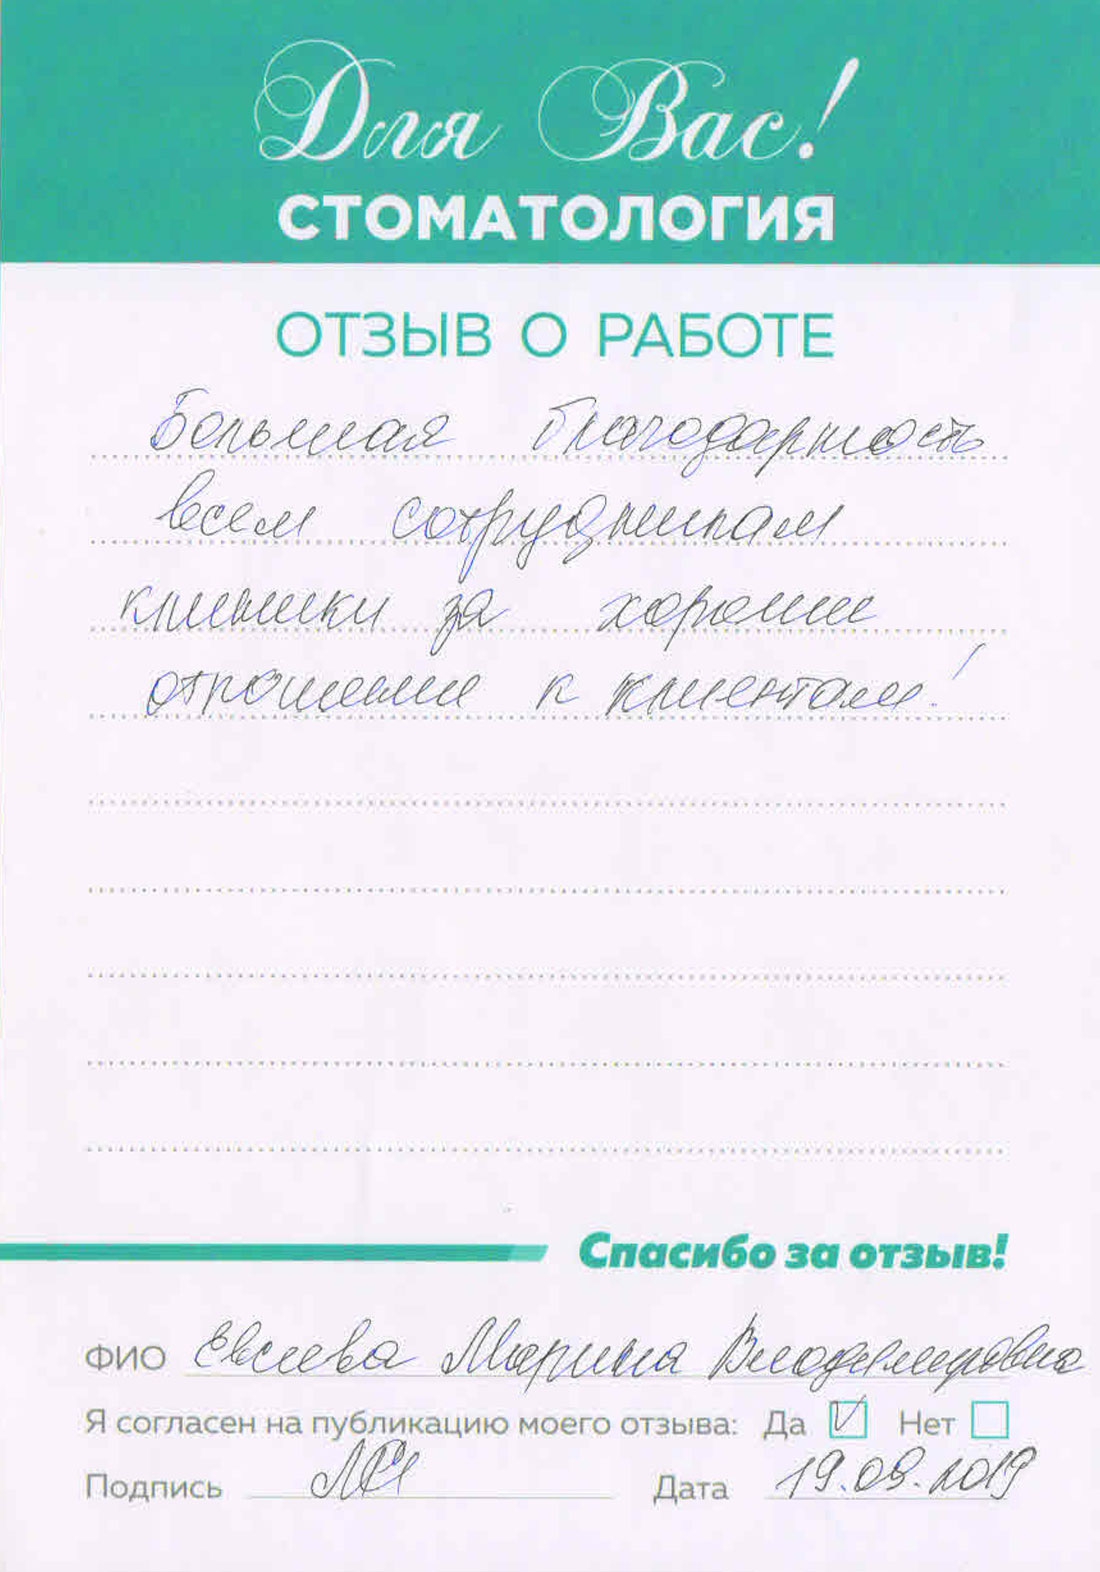 Для Вас!
СТОМАТОЛОГИЯ
ОТЗЫВ О РАБОТЕ
Большая благодарность
всем сотрудникам
клиники за хорошие
отношение к клиентам!
Спасибо за отзыв!
ФИО Евсиева Марина Владимировна
Я согласен на публикацию моего отзыва: Да ☑ Нет ☐
Подпись Дата 19.09.2019